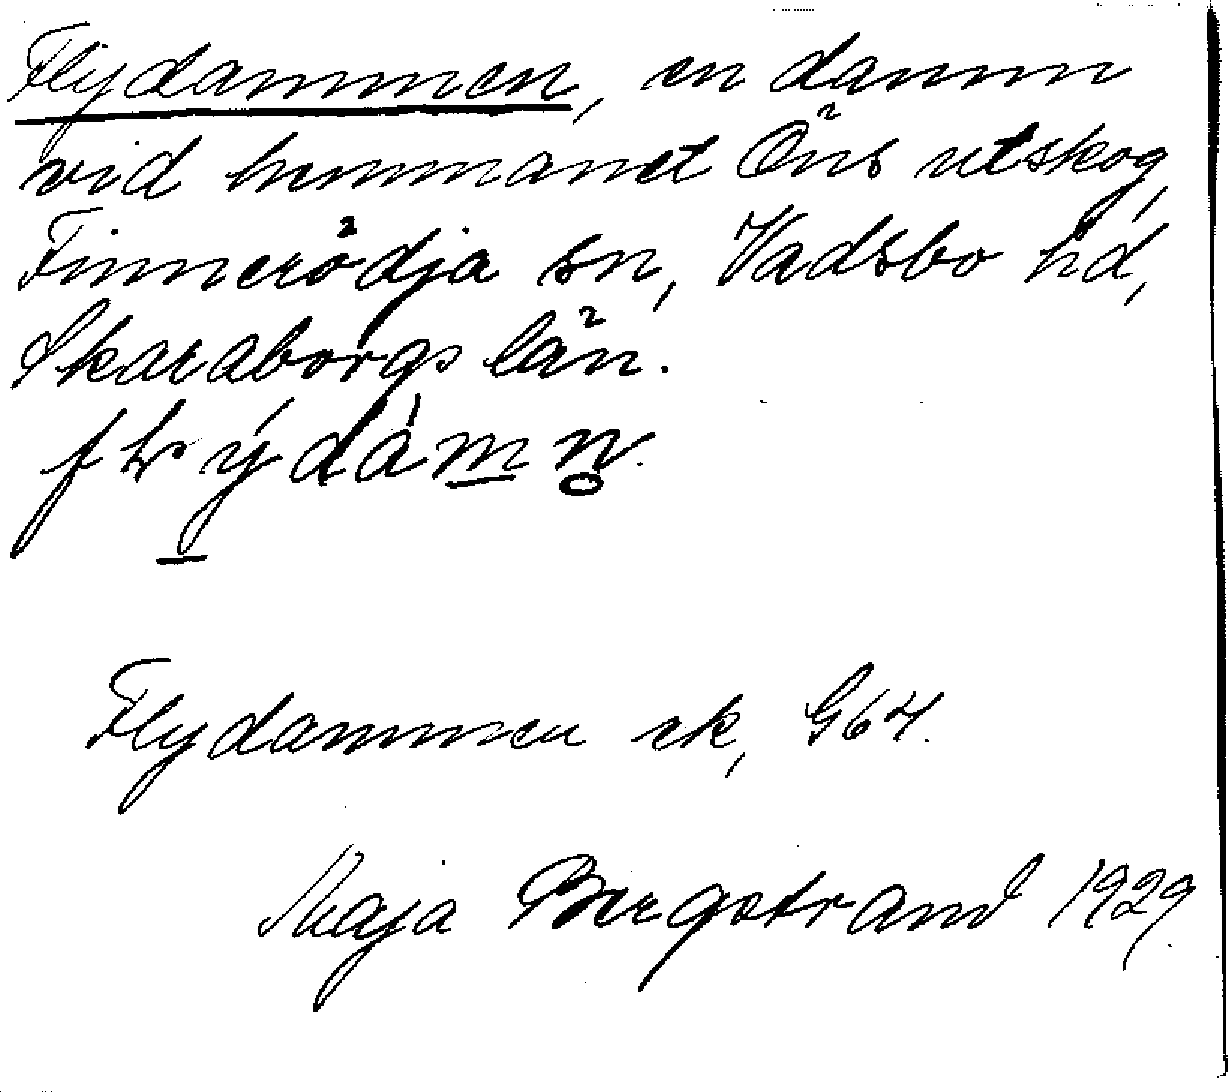 Flydammen, en damm
vid hemmanet Öns utskog,
Finnerödja sn, Vadsbo hd,
Skaraborgs län.
Flydammen ek, G64.
Maja Bergstrand 1929.